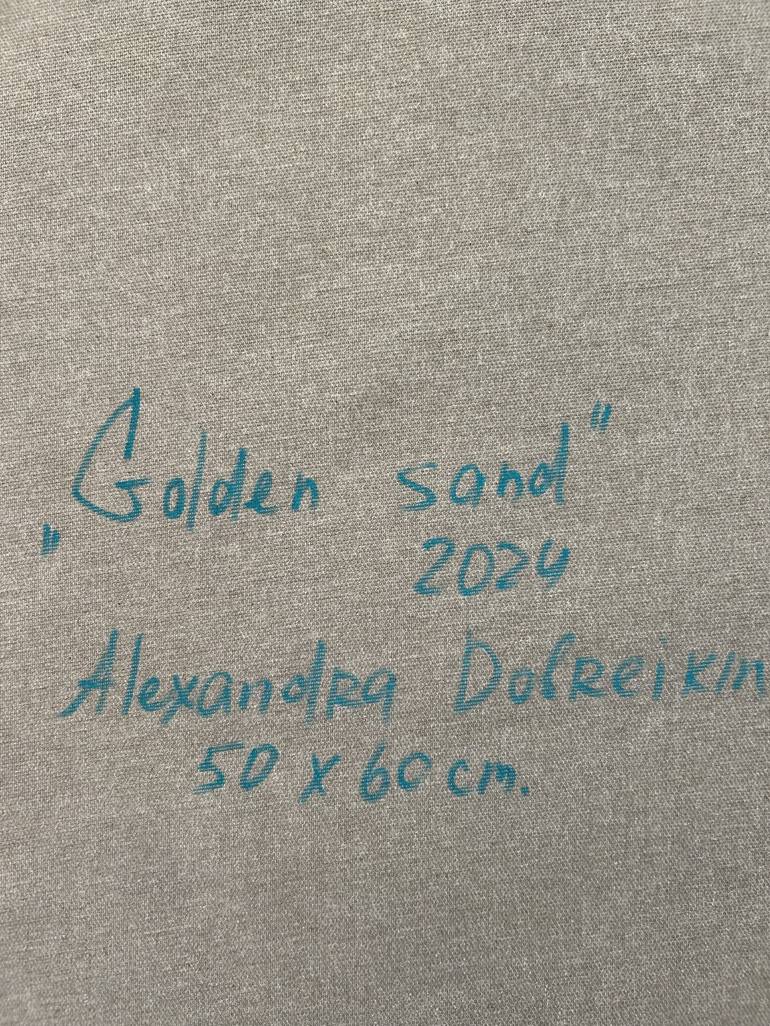 „Golden sand"
2024
Alexandra Dobreikin
50 x 60 cm.